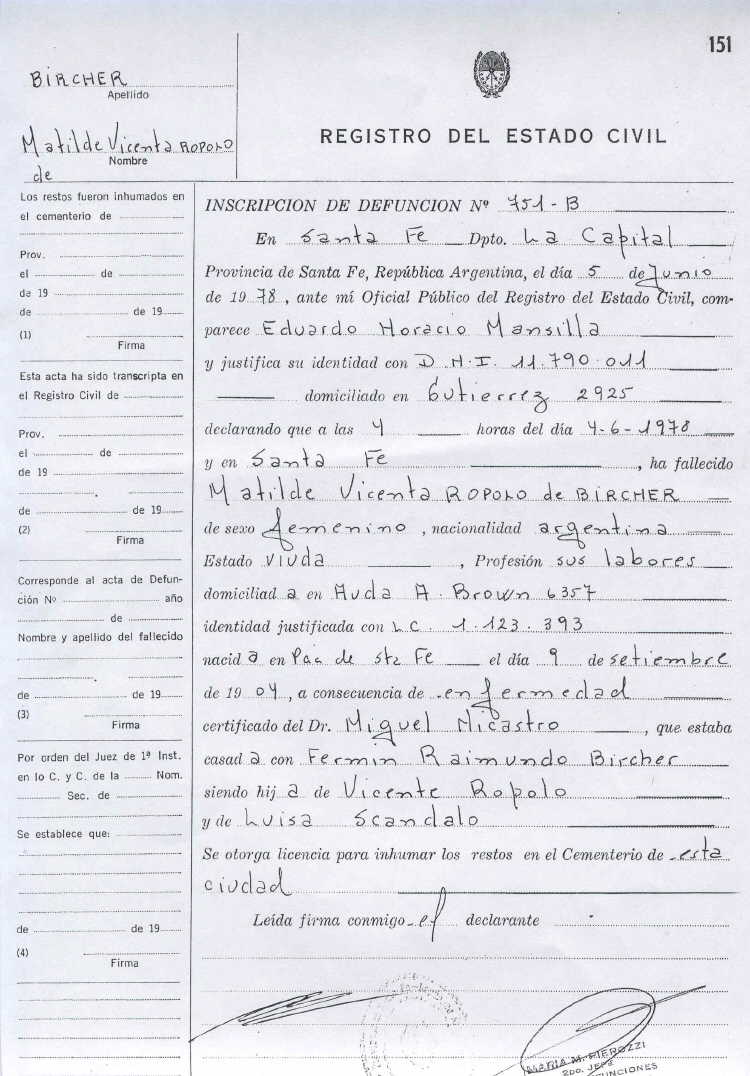 151
BIRCHER
Apellido
Matilde Vicenta ROPOLO
Nombre
de
REGISTRO DEL ESTADO CIVIL
Los restos fueron inhumados en
el cementerio de
Prov.
el de
de 19
de de 19
(1)
Firma
Esta acta ha sido transcripta en
el Registro Civil de
Prov.
el de
de 19
.
de de 19
(2)
Firma
Corresponde al acta de Defun-
ción Nº año
de
Nombre y apellido del fallecido
.
de de 19
(3)
Firma
Por orden del Juez de 1ª Inst.
en lo C. y C. de la Nom.
Sec. de
Se establece que:
de de 19
(4)
Firma
INSCRIPCION DE DEFUNCION Nº 751-B
En Santa Fe Dpto. La Capital
Provincia de Santa Fe, República Argentina, el día 5 de Junio
de 1978, ante mí Oficial Público del Registro del Estado Civil, com-
parece Eduardo Horacio Mansilla
y justifica su identidad con D.N.I. 11.790.011
domiciliado en Gutierrez 2925
declarando que a las 4 horas del día 4-6-1978
y en Santa Fe, ha fallecido
Matilde Vicenta ROPOLO de BIRCHER
de sexo femenino, nacionalidad argentina
Estado viuda, Profesión sus labores
domiciliad a en Avda A. Brown 6357
identidad justificada con L.C. 1.123.393
nacid a en Pcia de Sta Fe el día 9 de setiembre
de 1904, a consecuencia de enfermedad
certificado del Dr. Miguel Nicastro, que estaba
casad a con Fermin Raimundo Bircher
siendo hij a de Vicente Ropolo
y de Luisa Scandalo
Se otorga licencia para inhumar los restos en el Cementerio de esta
ciudad
Leída firma conmigo el declarante
MARIA M. PIEROZZI
2DO. JEFE